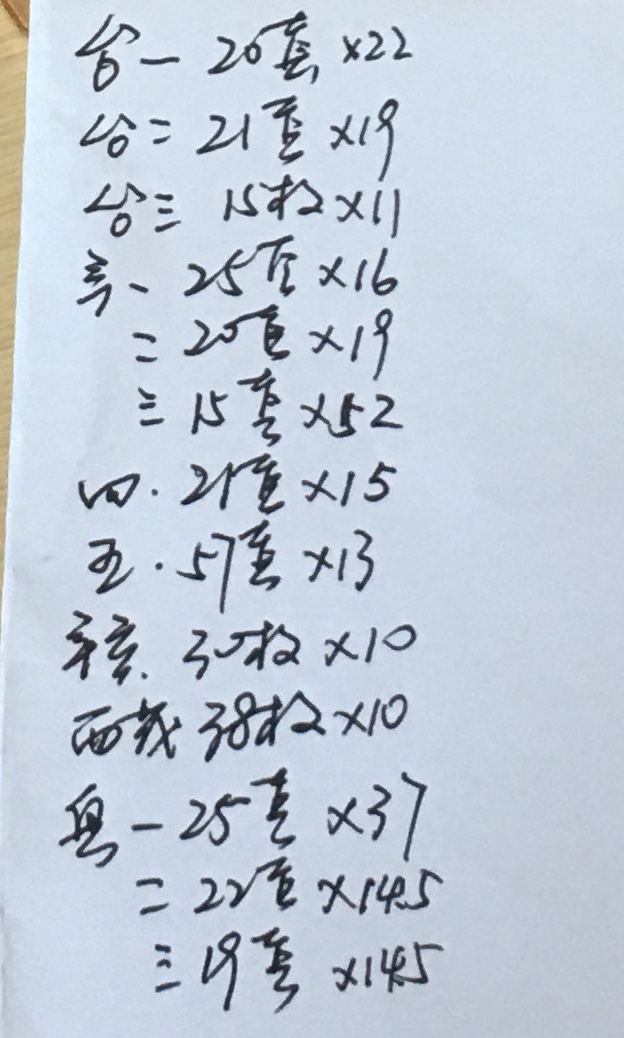 台一 20套×22
台二 21套×19
台三 15枚×11
一 25套×16
二 20套×19
三 15套×52
四. 21套×15
五. 57套×13
30枚×10
西藏 38枚×10
一 25套×37
二 22套×14.5
三 19套×14.5